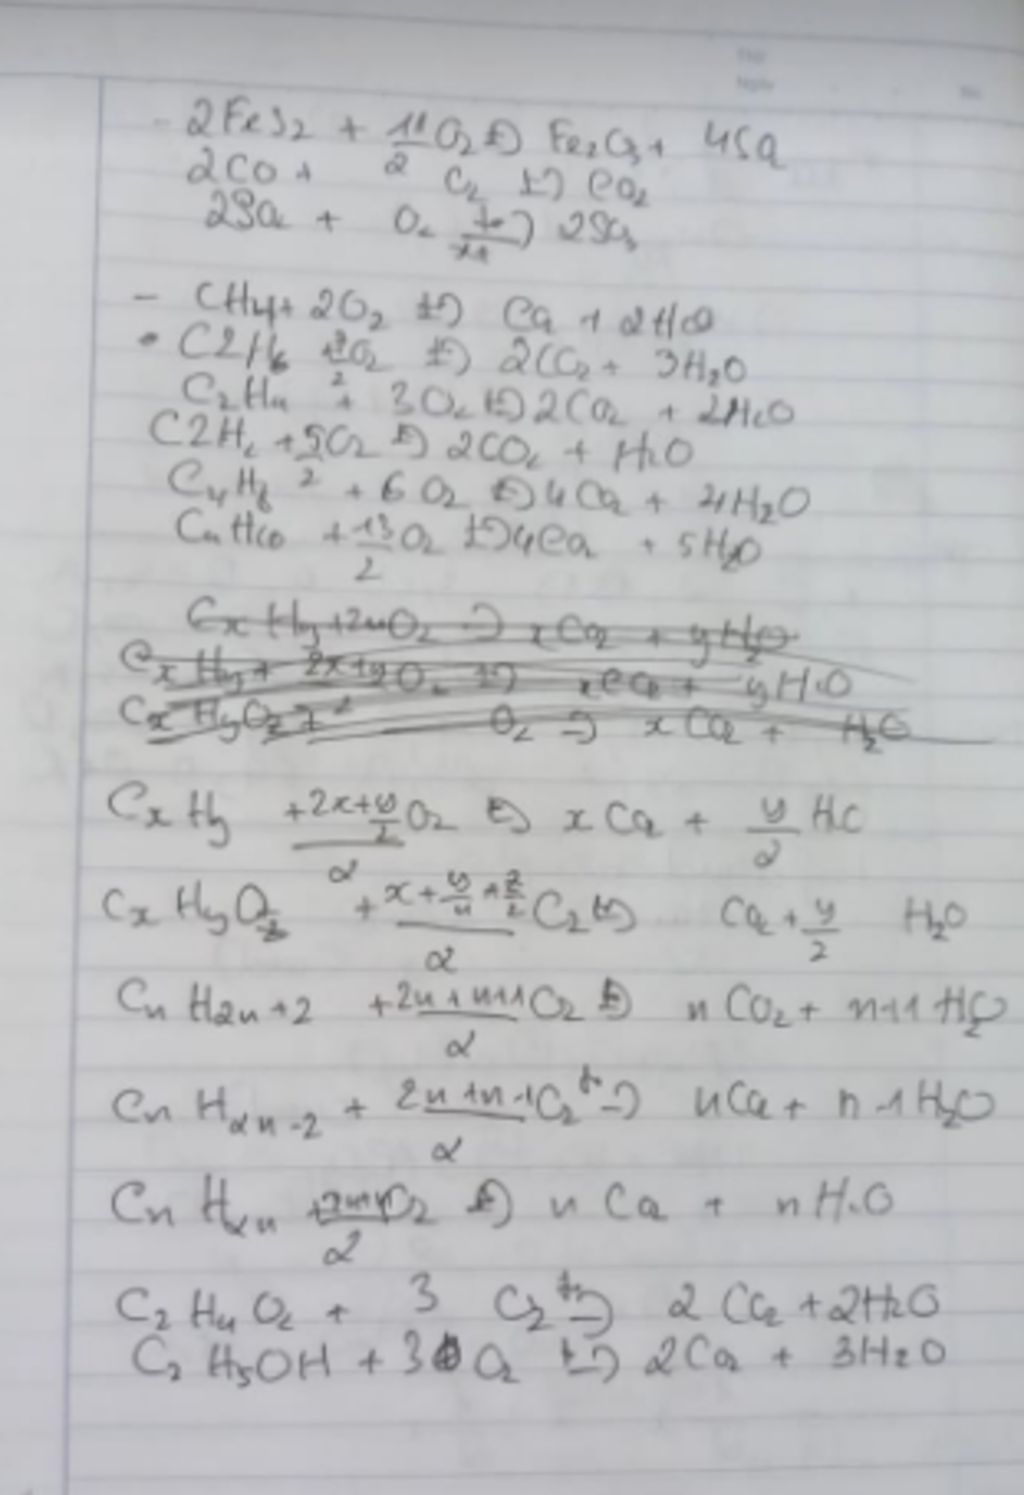 - 2FeS2 + 11/2 O2 t°→ Fe2O3 + 4SO2
2CO + O2 t°→ CO2
2SO2 + O2 t°→ 2SO3
- CH4 + 2O2 t°→ CO2 + 2H2O
• C2H6 + 7/2 O2 t°→ 2CO2 + 3H2O
C2H4 + 3O2 t°→ 2CO2 + 2H2O
C2H2 + 5/2 O2 t°→ 2CO2 + H2O
C4H8 + 6O2 t°→ 4CO2 + 4H2O
C4H10 + 13/2 O2 t°→ 4CO2 + 5H2O
CxHy + (2x+y/2)/2 O2 t°→ xCO2 + y/2 H2O
CxHyOz + (x+y/4+z/2)/2 O2 t°→ CO2 + y/2 H2O
CnH2n+2 + (2n+n+1)/2 O2 t°→ nCO2 + n+1 H2O
CnH2n-2 + (2n+n-1)/2 O2 t°→ nCO2 + n-1 H2O
CnH2n + O2 t°→ nCO2 + nH2O
C2H4O2 + 3 O2 t°→ 2CO2 + 2H2O
C2H5OH + 3 O2 t°→ 2CO2 + 3H2O